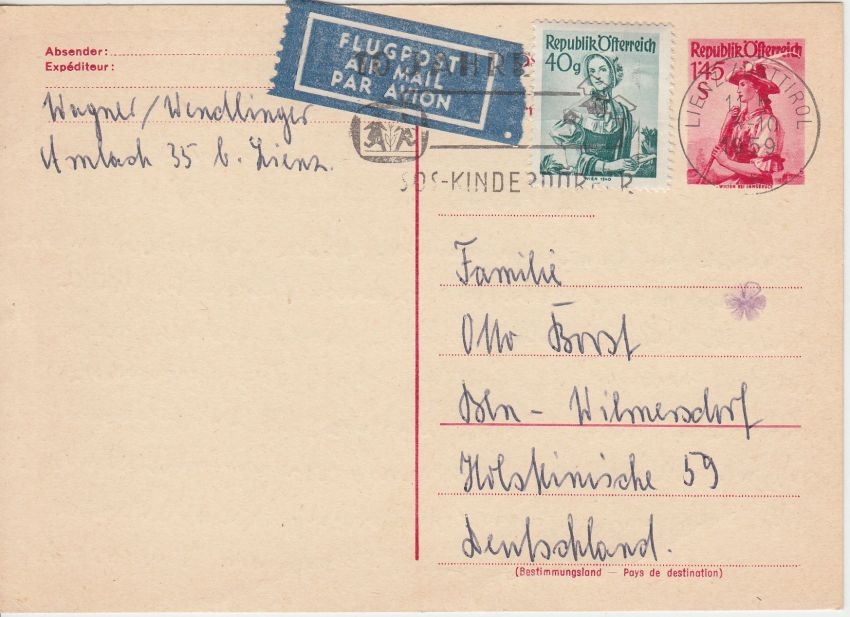 Absender:
Expéditeur:
Wagner/Wendlinger
Amlach 35 b. Lienz.
FLUGPOST
AIR MAIL
PAR AVION
10 JAHRE
SOS-KINDERDÖRFER
Republik Österreich
40g
WIEN 1840
Republik Österreich
1'45
S
WILTEN BEI INNSBRUCK
LIENZ OSTTIROL
1959
Familie
Otto Borst
Bln - Wilmersdorf
Holsteinische 59
Deutschland.
(Bestimmungsland — Pays de destination)